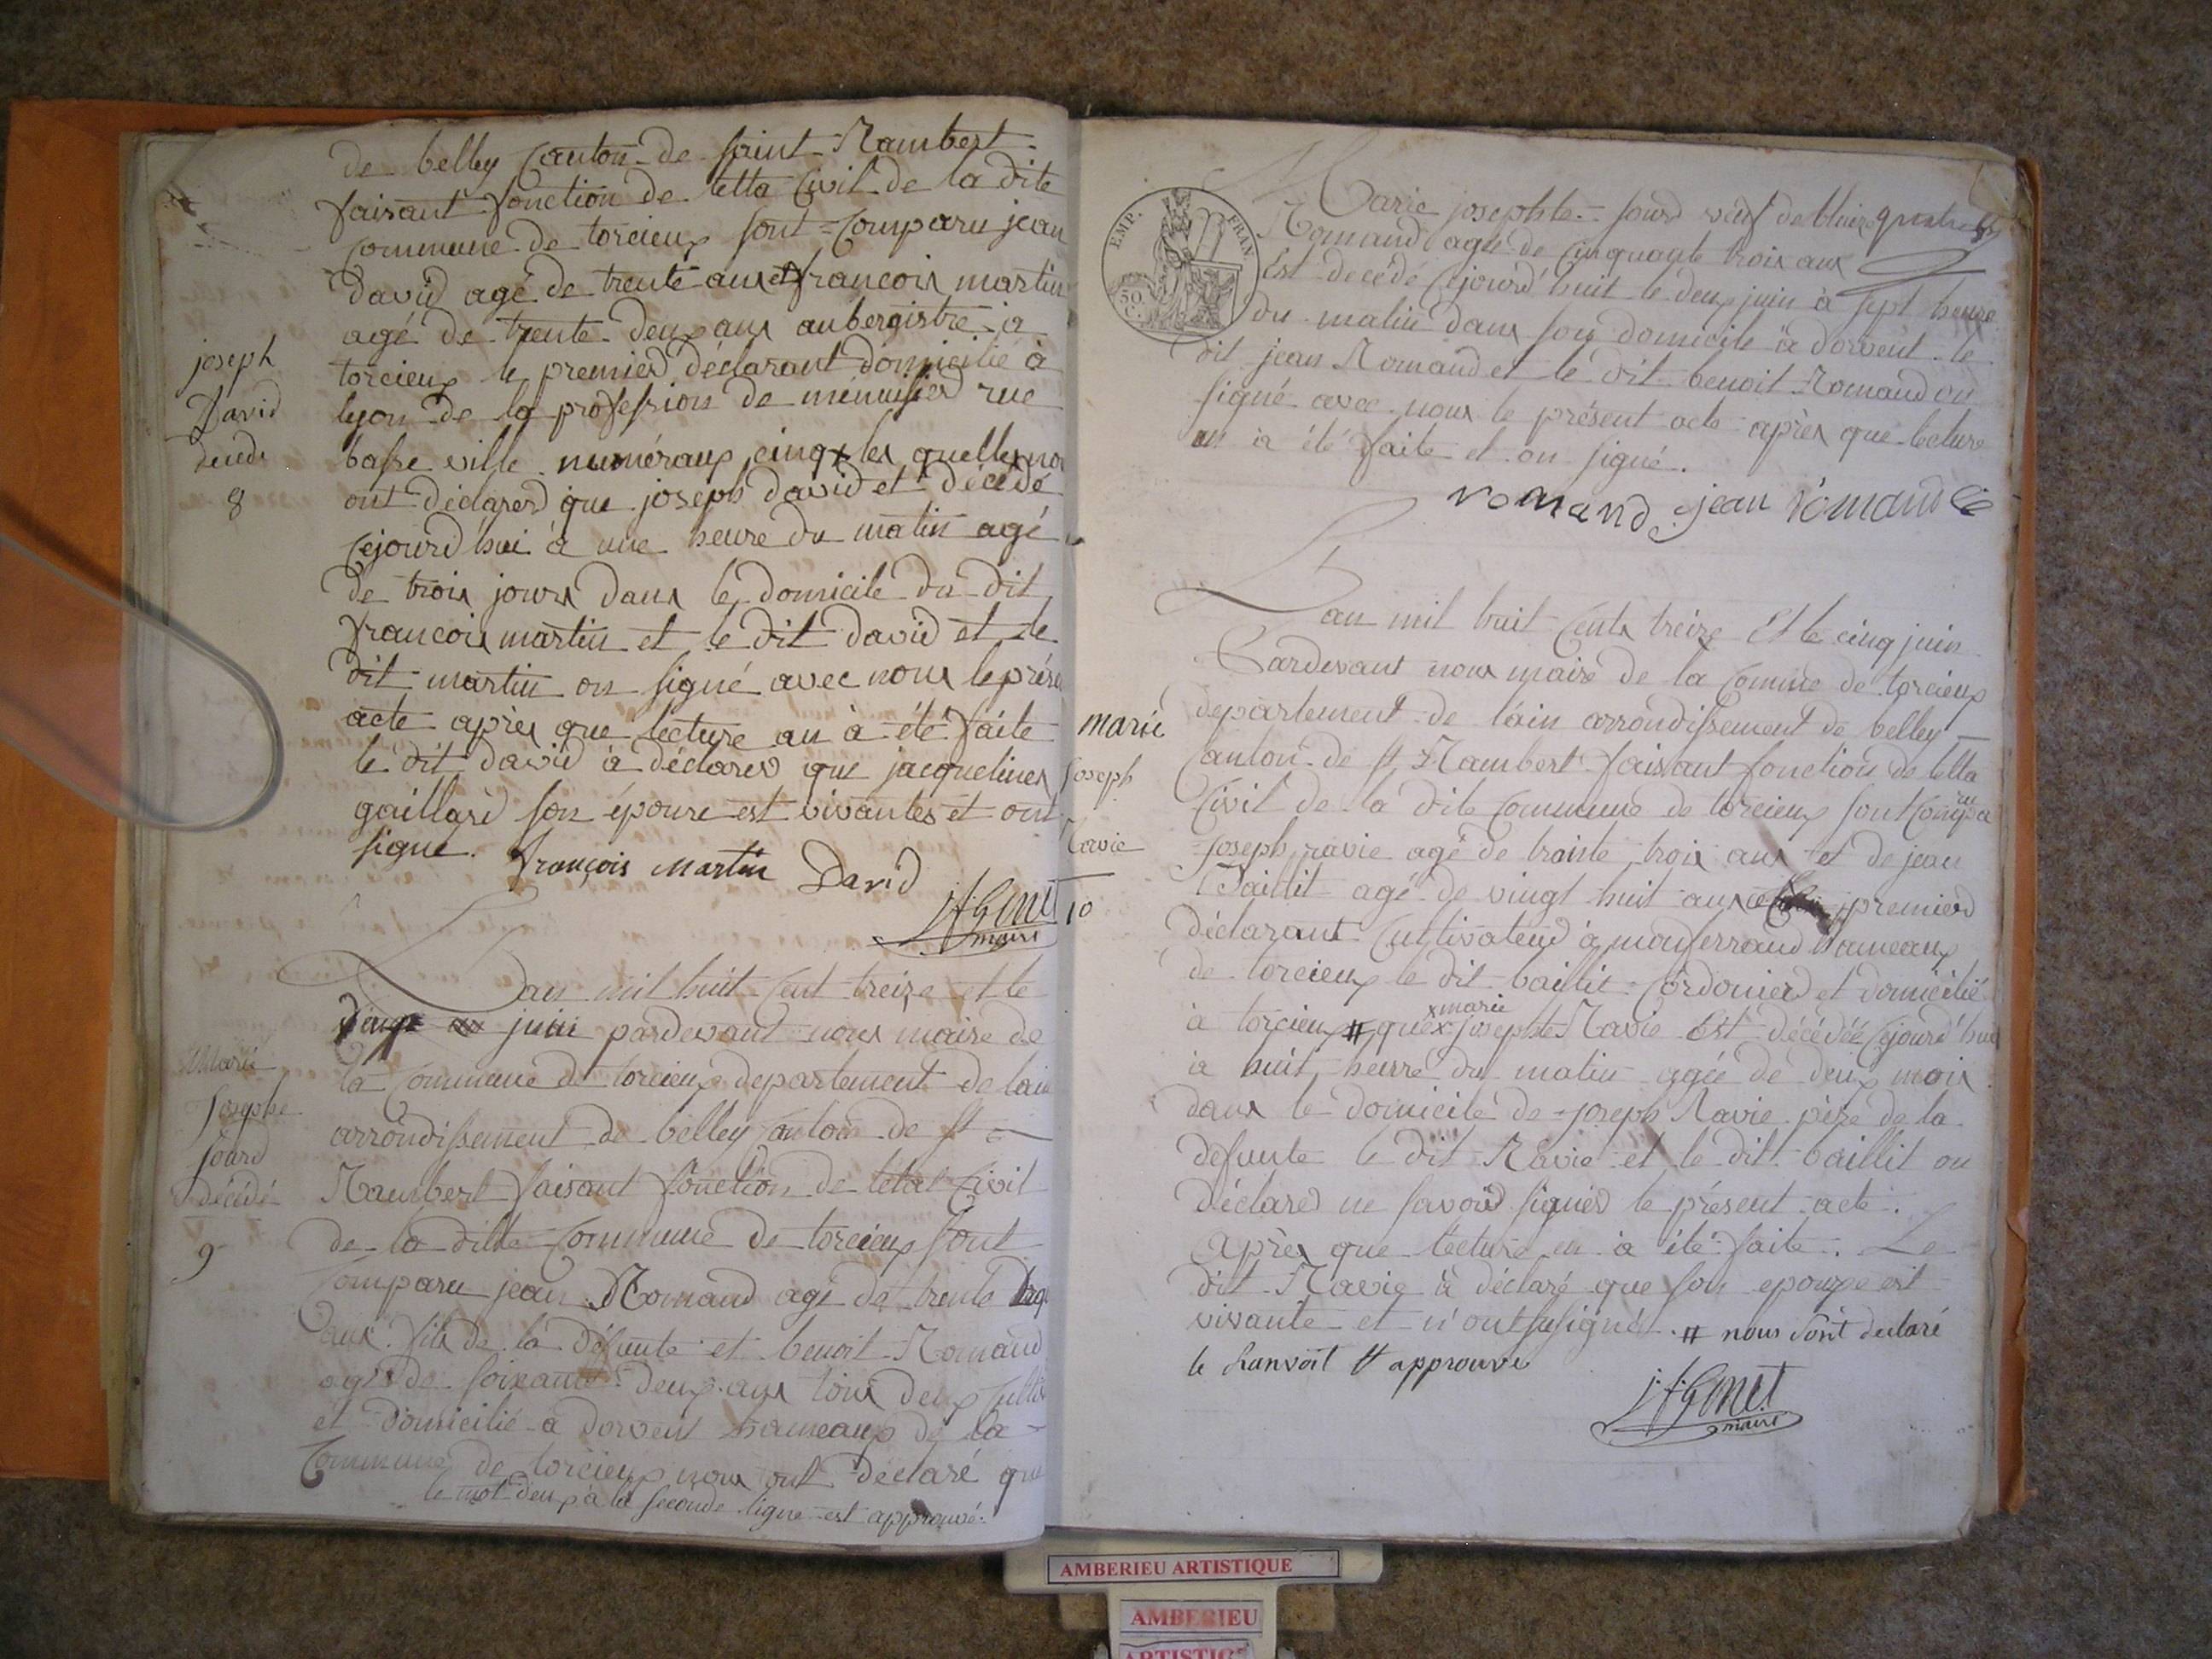 de belley Canton de saint Rambert
faisant fonction de letta Civil de la dite
Commune de torcieux sont Comparu jean
david agé de trente ans et francois martin
agé de trente deux ans aubergistre a
torcieux le premier déclarant domicilié à
lyon de la profession de ménuisier rue
basse ville numéraux cinq les quelles nou
ont déclarer que joseph david et décédé
Cejourd'hui à une heure du matin agé
de trois jours dans le domicile du dit
francois martin et le dit david et le
dit martin on signé avec nous le prése
acte après que lecture an à été faite
le dit david à déclarer que jacquelines
gaillard son épouse est vivantes et ont
signe. françois Martin David
maire
joseph
David
8
Lan mil huit Cent treize et le
deux juin pardevant nous maire de
la Commune de torcieux departement de lain
arrondissement de belley Canton de st
Rambert faisant fonction de letat Civil
de la dilte Commune de torcieux sont
Comparu jean Romand agé de trente
ans fils de la défunte et benoit Romand
agé de soixante deux ans tous deux Culti
et domicilié a dorvent hameaux de la
Commune de torcieux nous ont déclaré que
le mot deux à la seconde ligne est approuvé.
Marie
Josephe
jourd
décédé
9
EMP. FRAN
50 C.
Marie josephte jourd veuf de
Romand agée de Cinquante trois ans
Est décédé Cejourd'huit le deux juin à sept heure
du matin dans son domicile à dorvent le
dit jean Romand et le dit benoit Romand on
signé avec nous le présent acte après que lecture
an à été faite et on signé.
romand jean romand
Lan mil huit Cents treize Et le cinq juin
Pardevant nous maire de la Commune de torcieux
departement de lain arrondissement de belley
Canton de st Rambert faisant fonction de letta
Civil de la dite Commune de torcieux sont Comparu
joseph ravie agé de trante trois ans et de jean
Baillit agé de vingt huit ans premier
déclarant Cultivateur à monferrand hameaux
de torcieux le dit baillit Cordonier et domicilié
à torcieux # que x marie josephte Ravie Est décédée Cejourd'hui
à huit heure du matin agée de deux mois
dans le domicile de joseph Ravie père de la
defunte le dit Ravie et le dit baillit on
déclarer ne savoir signer le présent acte.
Après que lecture en à été faite. Le
dit Ravie à déclaré que son epouze est
vivante et n'ont signé. # nous sont declaré
le Ranvoit # approuvé
maire
marie
Joseph
Ravie
10
AMBERIEU ARTISTIQUE
AMBERIEU
ARTISTIQ